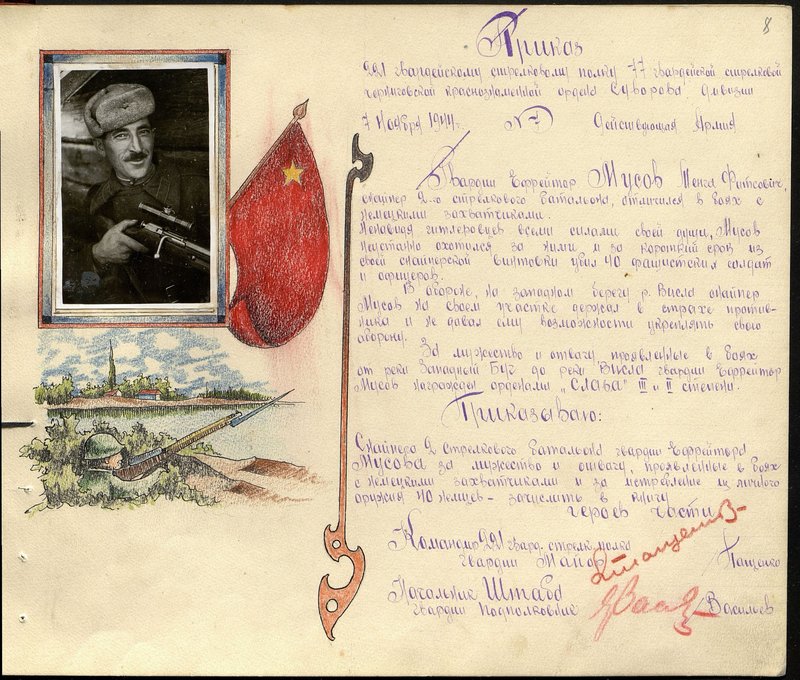 8
Приказ
221 гвардейскому стрелковому полку 77 гвардейской стрелковой
черниговской краснознаменной ордена Суворова дивизии
7 ноября 1944г. № Действующая Армия
Гвардии Ефрейтор Мусов Менга Фитсович,
снайпер 2-го стрелкового батальона, отличился в боях с
немецкими захватчиками.
Ненавидя гитлеровцев всеми силами своей души, Мусов
неустанно охотился за ними и за короткий срок из
своей снайперской винтовки убил 40 фашистских солдат
и офицеров.
В обороне, на западном берегу р. Висла снайпер
Мусов на своем участке держал в страхе против-
ника и не давал ему возможности укреплять свою
оборону.
За мужество и отвагу, проявленные в боях
от реки Западный Буг до реки Висла гвардии Ефрейтор
Мусов награжден орденами „Слава" III и II степени.
Приказываю:
Снайпера 2 стрелкового батальона гвардии Ефрейтора
Мусова за мужество и отвагу, проявленные в боях
с немецкими захватчиками и за истребление из личного
оружия 40 немцев - зачислить в книгу
героев части
Командир 221 гвард. стрелк. полка
гвардии Майор /Пащенко
Начальник Штаба
гвардии подполковник /Васильев